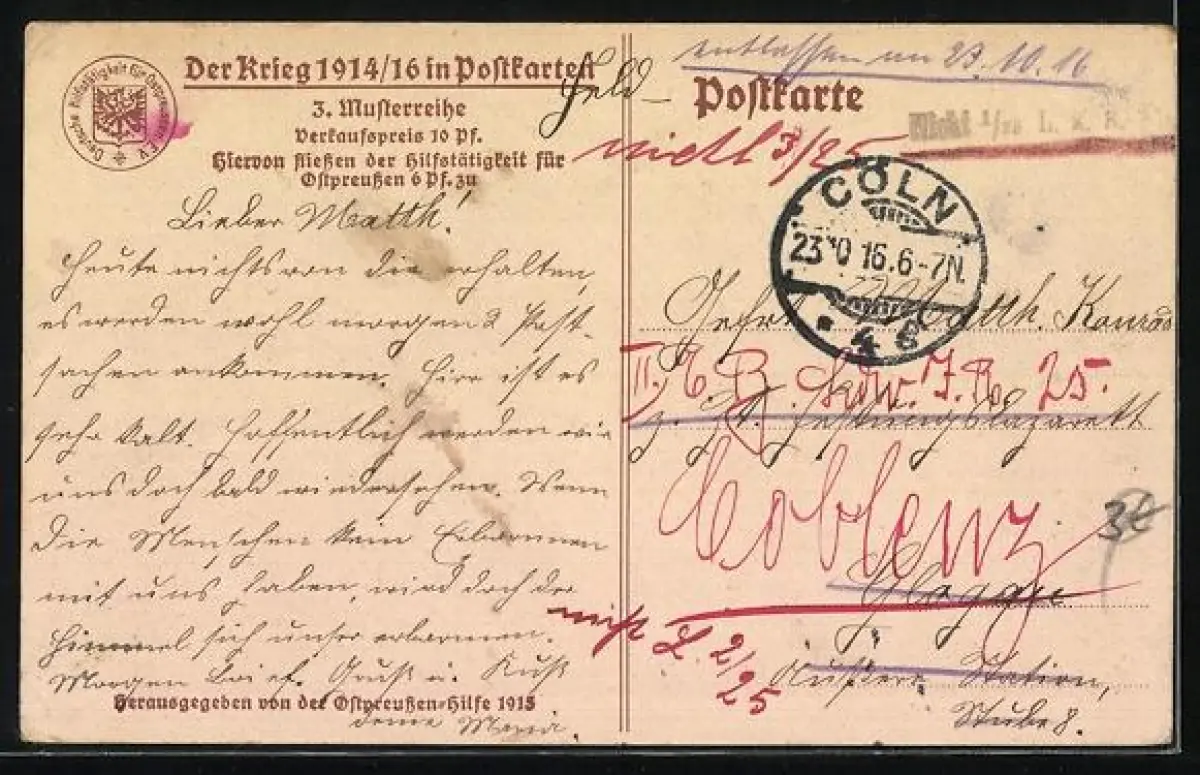 Deutsche Hilfstätigkeit für Ostpreußen E.V.
Der Krieg 1914/16 in Postkarten
3. Musterreihe
Verkaufspreis 10 Pf.
Hiervon fließen der Hilfstätigkeit für
Ostpreußen 6 Pf. zu
Lieber Matth!
Heute nichts von Dir erhalten,
es werden wohl morgen 2 Post-
sachen ankommen. Hier ist es
sehr kalt. Hoffentlich werden wir
uns doch bald wiedersehen. Wenn
die Menschen kein Erbarmen
mit uns haben, wird doch der
Himmel sich unser erbarmen.
Morgen Brief. Gruß u. Kuß
Herausgegeben von der Ostpreußen-Hilfe 1915
Deine Maria.
entlassen am 23.10.16
Feld-
Postkarte
Nicht
nicht 3/25
CÖLN
23 10 16.6-7N.
Gefr. Matth. Konrad
II. E. B. I.R. 25.
z. Zt. Festungslazarett
Coblenz
Glogau
nicht 2/25
Äußere Station,
Stube 8.